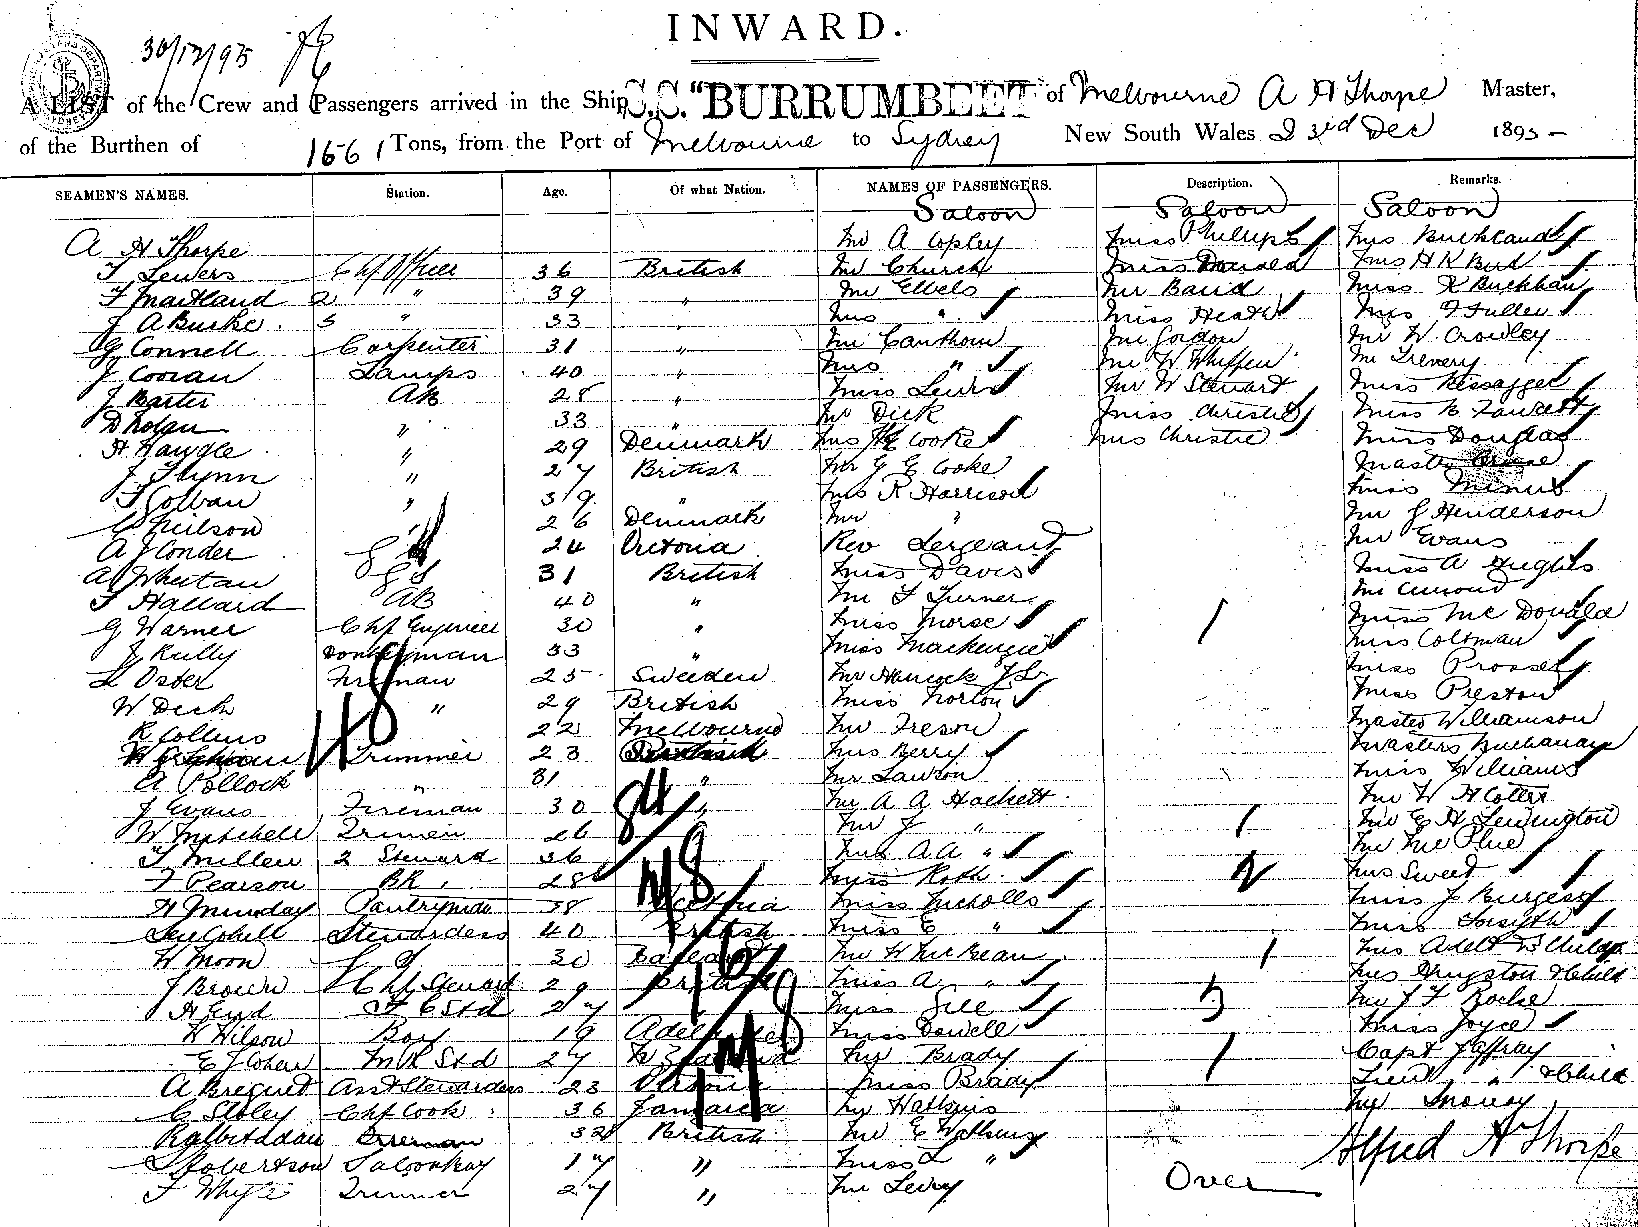 INWARD.
30/12/95
A LIST of the Crew and Passengers arrived in the Ship S.S. "BURRUMBEET of Melbourne A H Thorpe Master,
of the Burthen of 1661 Tons, from the Port of Melbourne to Sydney New South Wales 23rd Dec 1895
SEAMEN'S NAMES. Station. Age. Of what Nation. NAMES OF PASSENGERS. Description. Remarks.
Saloon Saloon Saloon
A H Thorpe Mr A Copley Miss Phillips Mrs Buckland
T Lewers Chf Officer 36 British Mr Church Miss Donald Mrs H R Bird
T Maitland 2 " 39 " Mr Ebbels Mr Baird Miss K Buckhan
J A Burke 3 " 33 " Mrs " Miss Heath Mrs F Fuller
G Connell Carpenter 31 " Mr Canthorn Mr Gordon Mr W Crowley
J Cooran Lamps 40 " Mrs " Mr W Whiffen Mr Trevery
J Barter AB 28 " Miss Lewis Mr W Stewart Miss
D Nolan " 33 " Mr Dick Miss Christie Miss E Fawcett
H Haugle " 29 Denmark Mrs Cooke Mrs Christie Miss Douglas
J Flynn " 27 British Mr G E Cooke Master
T Colvan " 39 " Mrs R Harrison Miss Minus
C Neilson 26 Denmark Mr " Mr J Henderson
A J Conder 24 Victoria Rev Sergeant Mr Evans
A Wheatan 31 British Miss Davis Miss A Hughes
T Hallard AB 40 " Mr F Turner Mr
G Warner Chf Engineer 30 " Miss Morse Miss Mc Donald
J Kelly Donkeyman 33 " Miss Mackenzie Miss Coloman
L Oster Fireman 25 Sweden Mr Hancock Miss Prosser
W Dick " 29 British Miss Norton Miss Preston
R Collins 22 Melbourne Mr Treson Master Williamson
Trimmer 23 British Mrs Berry Masters Buchanan
A Pollock " 31 " Mr Lawson Miss Williams
J Evans Fireman 30 " Mr A A Hackett Mr W H Cotter
W Mitchell Trimmer 26 Mr J " Mr E H Lewington
T Millen 2 Steward 36 Mrs A A " Mr Mc Phee
F Pearson BR 28 Miss Roth Mrs Sweet
H Munday Pantryman 38 Victoria Miss Nicholls Miss J Burgess
Cahill Stewardess 40 British Miss E " Miss Forsyth
W Moon 30 Ballarat Mr W McBean Mrs Adelt & Child
J Brown Chf Steward 29 British Miss A " Mrs Kingston & Child
H Gud F C Std 27 Miss Gill Mr J F Roche
W Wilson Boy 19 Adelaide Miss Dowell Miss Joyce
E J Cohen M R Std 27 N Zealand Mr Brady Capt Jaffray
A Breguet Asst Stewardess 23 Victoria Miss Brady Lieu " & Child
C Stoley Chf Cook 36 Jamaica Mr Watkins Mr
32 British Mr E Watkins Alfred H Thorpe
Robertson Saloon boy 17 " Miss L "
F Whyte Trimmer 27 " Mr Levry Over